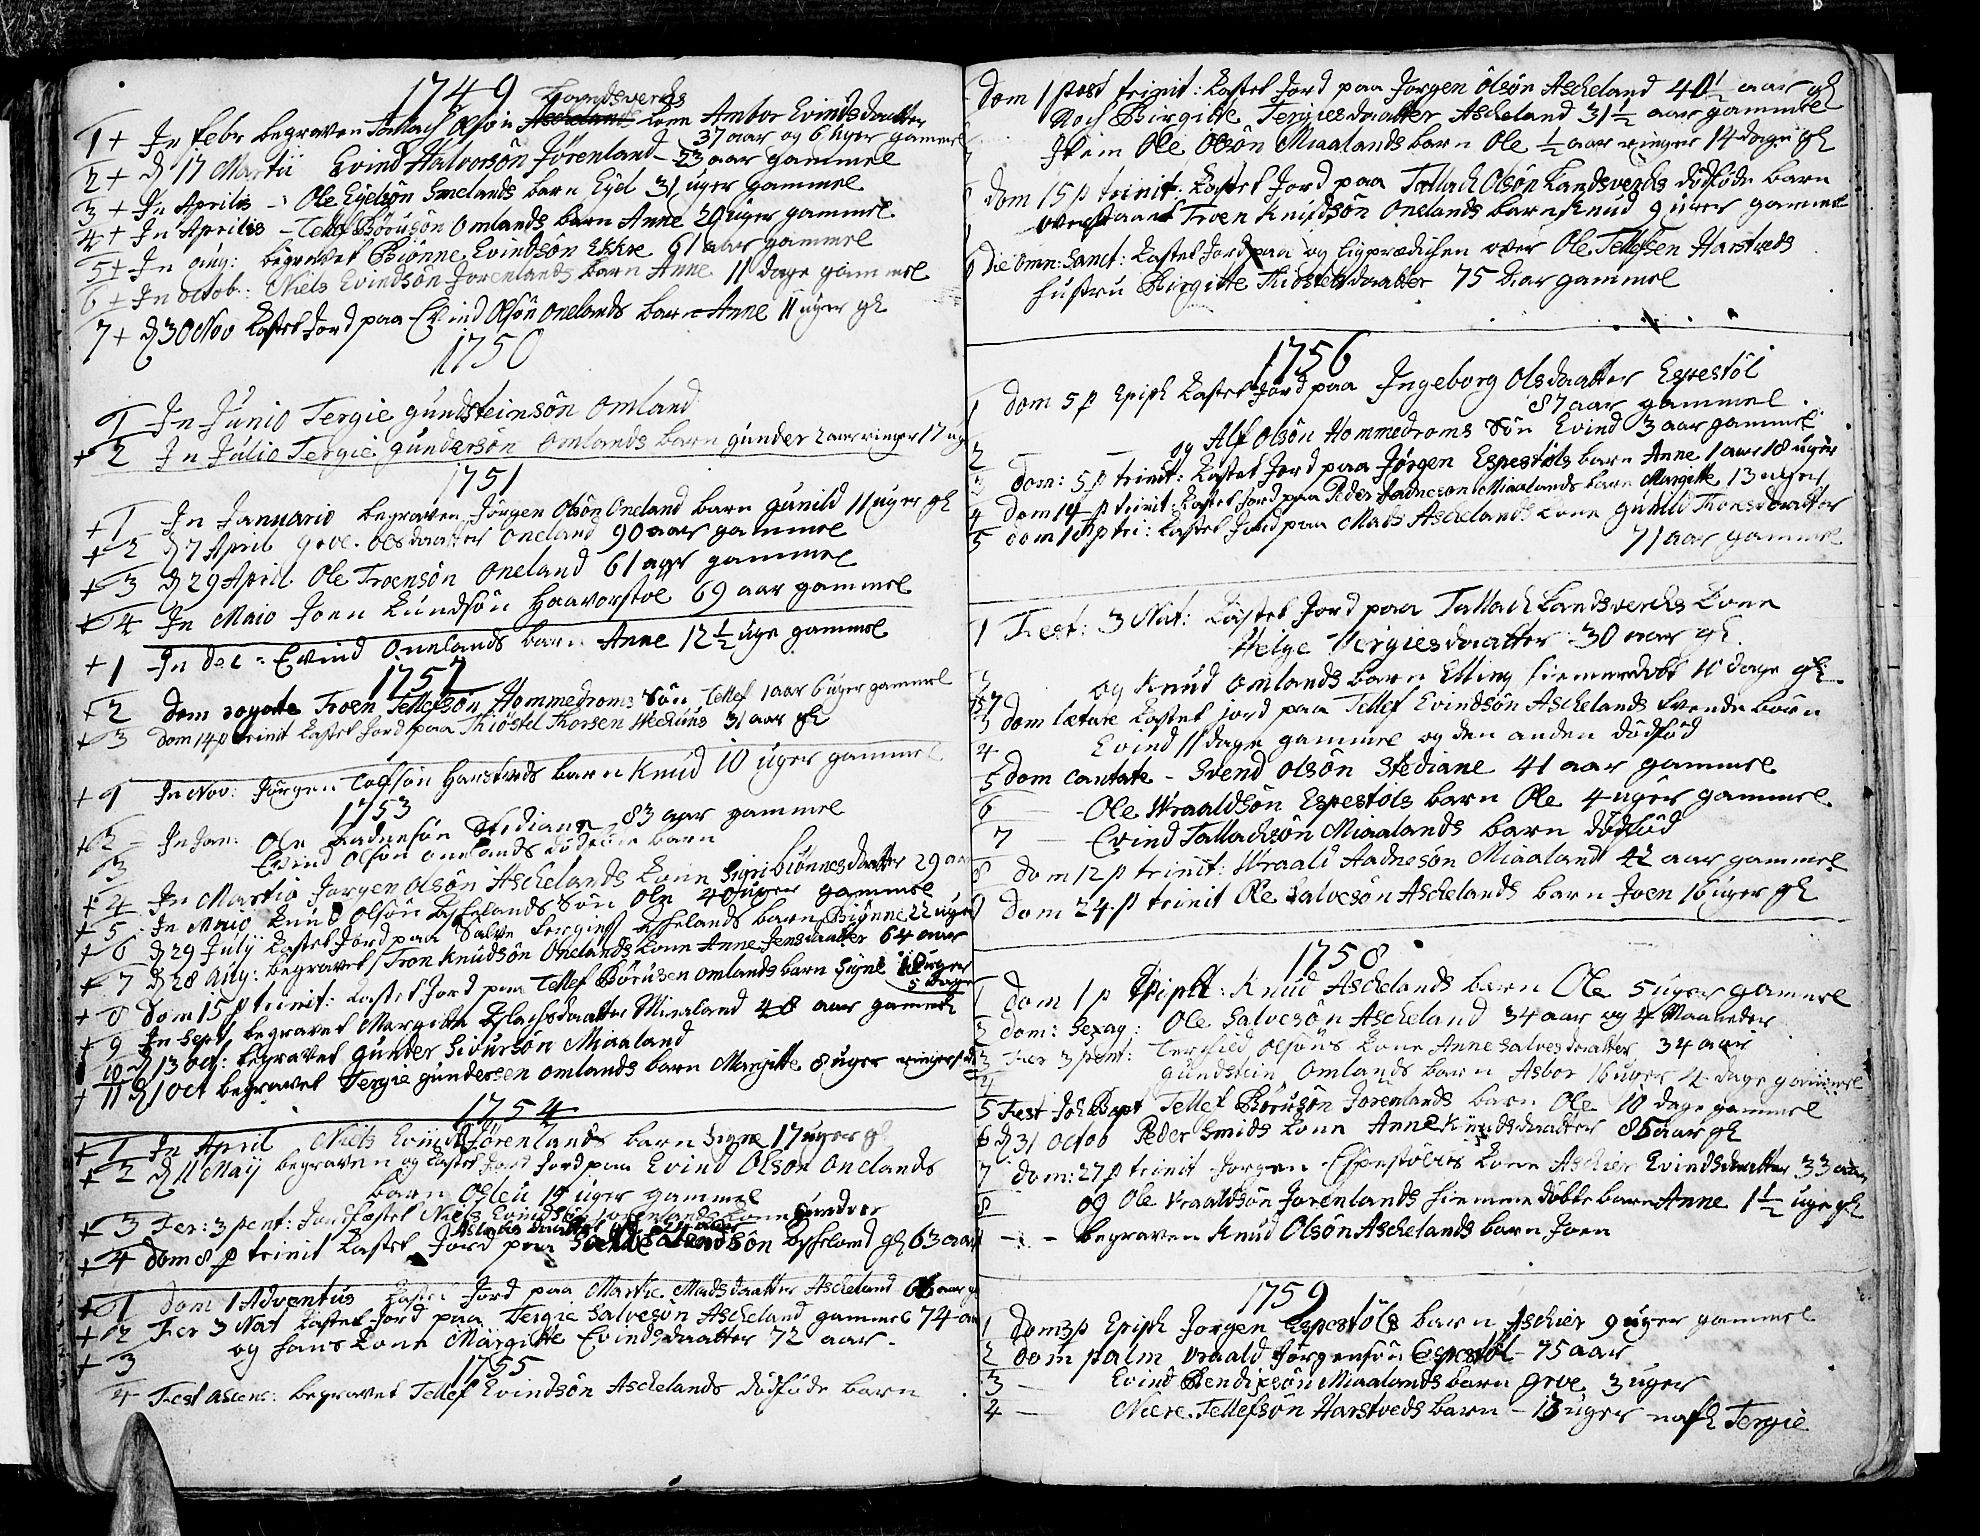 1749
Landsverchs
1 + In febr begraven Tallach Olsøn Ascheland kone Ambor Evindsdaatter
37 aar og 6 uger gammel
2 + d 17 Martii Evind Halvorsøn Jørenland - 23 aar gammel
3 + In Aprilis - Ole Eyelsøn Smelands barn Eyel 31 uger gammel
4 + In Aprilis - Tellef Børusøn Omlands barn Anne 20 uger gammel
5 + In aug: begravet Biønne Evindsøn Eskre 61 aar gammel
6 + In octob: Niels Evindsøn Jorenlands barn Anne 11 dage gammel
7 + d 30 Nov kastet Jord paa Evind Olsøn Onelands barn Anne 11 uger gl
1750
1 In Junio Tergie gundsteinsøn Omland
+ 2 In Julio Tergie gundersøn Omlands barn gunder 2 aar ringer 17 ug
1751
+ 1 In Januario begraven Jørgen Olsøn Oneland barn gunild 11 uger gl
+ 2 d 7 April Grve Olsdaatter Oneland 90 aar gammel
+ 3 d 29 April Ole Troensøn Oneland 61 aar gammel
+ 4 In Maio Joen Lundsøn Haavorstøl 69 aar gammel
+ 1 In Dec = Evind Onelands barn Anne 12 ½ uge gammel
1752
+ 2 Dom rogate Troen Tellefsøn Hommedroms Søn Tellef 1 aar 6 uger gammel
+ 3 Dom 14 p trinit kastet Jord paa Thiøstel Thorsen 31 aar gl
+ 1 In Nov: Jørgen Harstveds barn Knud 10 uger gammel
1753
+ 2 - In Jan: Ole Aadnesøn Stediane 83 aar gammel
3 Evind Olsøn Onelands dødføde barn
+ 4 In Martio Jørgen Olsøn Aschelands kone Sigri Biønnesdaatter 29 aar
+ 5 In Maio Knud Olsøn Aschelands Søn Ole 40 uger gammel
+ 6 d 29 July kastet Jord paa Salve Tergies Aschelands barn Biønne 22 uger
+ 7 d 28 Aug: begravet Tron Knudsøn Onelands kone Anne Jensdaatter 64 aar
+ 8 Dom 15 p trinit: kastet Jord paa Tellef Børusen Omlands barn Signe uger
5 dage
+ 9 In Sept begravet Margitte Aslachsdaatter Miaaland 48 aar gammel
10 d 13 oct: begravet Gunder Siversøn Miaaland
+ 11 d 1 Oct begravet Tergie gundersen omlands barn Margitte 8 uger ringer
1754
+ 1 In April Niels Evinds Jørenlands barn Signe 17 uger gl
+ 2 d 11 Maij begraven og kastet Jord paa Evind Olsøn Onelands
barn Osleu uger gammel
+ 3 Fer: 3 pent: Jordfæstet Niels Evindsøn Jorenlands kone Gundvor
+ 4 Dom 8 p trinit kastet Jord paa gl 63 aar
+ 1 Dom 1 Adventus kastet Jord paa Marthe Madsdaatter Ascheland 66 aar
+ 2 Fer 3 Nat kastet Jord paa Tergie Salvesøn Ascheland gammel 74 aar
+ 3 og hans kone Margitte Evindsdaatter 72 aar -
1755
4 Fest ascens: begravet Tellef Evindsøn Aschelands dødføde barn
Dom 1 post trinit: kastet Jord paa Jørgen Olsøn Ascheland 40 ½ aar gl
Noch Birgitte Tergiesdaatter Ascheland 31 ½ aar gammel
Item Ole Olsøn Miaalands barn Ole ½ aar ringer 14 dage gl
Dom 15 p trinit: kastet Jord paa Tallach Olsøn Landsverchs dødføde barn
Troen Knudsøn Onelands barn Knud 9 uger gammel
Die Omn: Sanct: kastet Jord paa og Ligprædichen over Ole Tellefsen Harstveds
hustru Birgitte Thiøstelsdaatter 75 aar gammel
1756
1 Dom 5 p Epiph kastet Jord paa Ingeborg Olsdaatter Espestøl
87 aar gammel
2 - - og Alf Olsøn Hommedroms Søn Evind 3 aar gammel
3 Dom: 5 p trinit: kastet Jord paa Jørgen Espestøls barn Anne 1 aar 18 uger
4 Dom 14 p trinit: kastet Jord paa Peder Aadneson Miaalands barn Margitte 13 uger
5 Dom 18 p tri: kastet Jord paa Mads Aschelands kone gunild Thoresdaatter
71 aar gammel
1 Fest: 3 Nat: kastet Jord paa Tallach Landsverchs kone
Helge Tergiesdaatter 30 aar gl.
2 og Knud Omlands barn Elling hiemmedøbt 10 dage gl.
57
3 Dom lætare kastet jord paa Tellef Evindsøn Aschelands tvende børn
4 Evind 11 dage gammel og den anden dødfød
5 Dom cantate - Svend Olsøn Stediane 41 aar gammel
6 - Ole Wraaldsøn Espestøls barn Ole 4 uger gammel.
7 - Evind Tallachsøn Miaalands barn dødfød
8 Dom 12 p trinit: Wraald Aadnesøn Miaaland 42 aar gammel
9 Dom 24 p trinit Ole Salvesøn Aschelands barn Joen 16 uger gl
1758
1 Dom 1 p Epiph: Knud Aschelands barn Ole 5 uger gammel
2 Dom: Sexag: Ole Salvesøn Ascheland 34 aar og 4 Maaneder
3 Fer 3 pent: Olsøns kone Anne Salvesdaatter 34 aar
4 gundstein Omlands barn Asbor 16 uger 4 dage gammel
5 Fest Joh Bapt Tellef Børusøn Jorenlands barn Ole 10 dage gammel
6 d 31 octob Peder Smids kone Anne Knudsdaatter 85 aar gl
7 Dom: 27 p trinit Jorgen Espestøls kone Aschier Evindsdaatter 33 aar
8 og Ole Wraaldsøn Jorenlands hiemmedøbte barn Anne 1 ½ uge gl
- - begraven Knud Olsøn Aschelands barn Joen
1759
1 Dom 3 p Epiph Jorgen Espestøls barn Aschier 9 uger gammel
2 Dom palm Vraald Jørgensøn Espestøl - 75 aar
3 - Evind Bendixsøn Miaalands barn Grve 3 uger
4 - Niere Tellefsøn Harstveds barn - 13 uger nafl Tergie